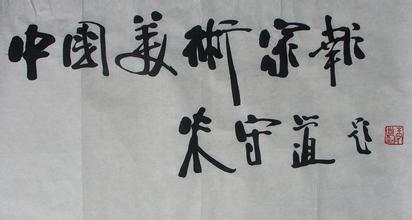 中国美術家報
朱守道題